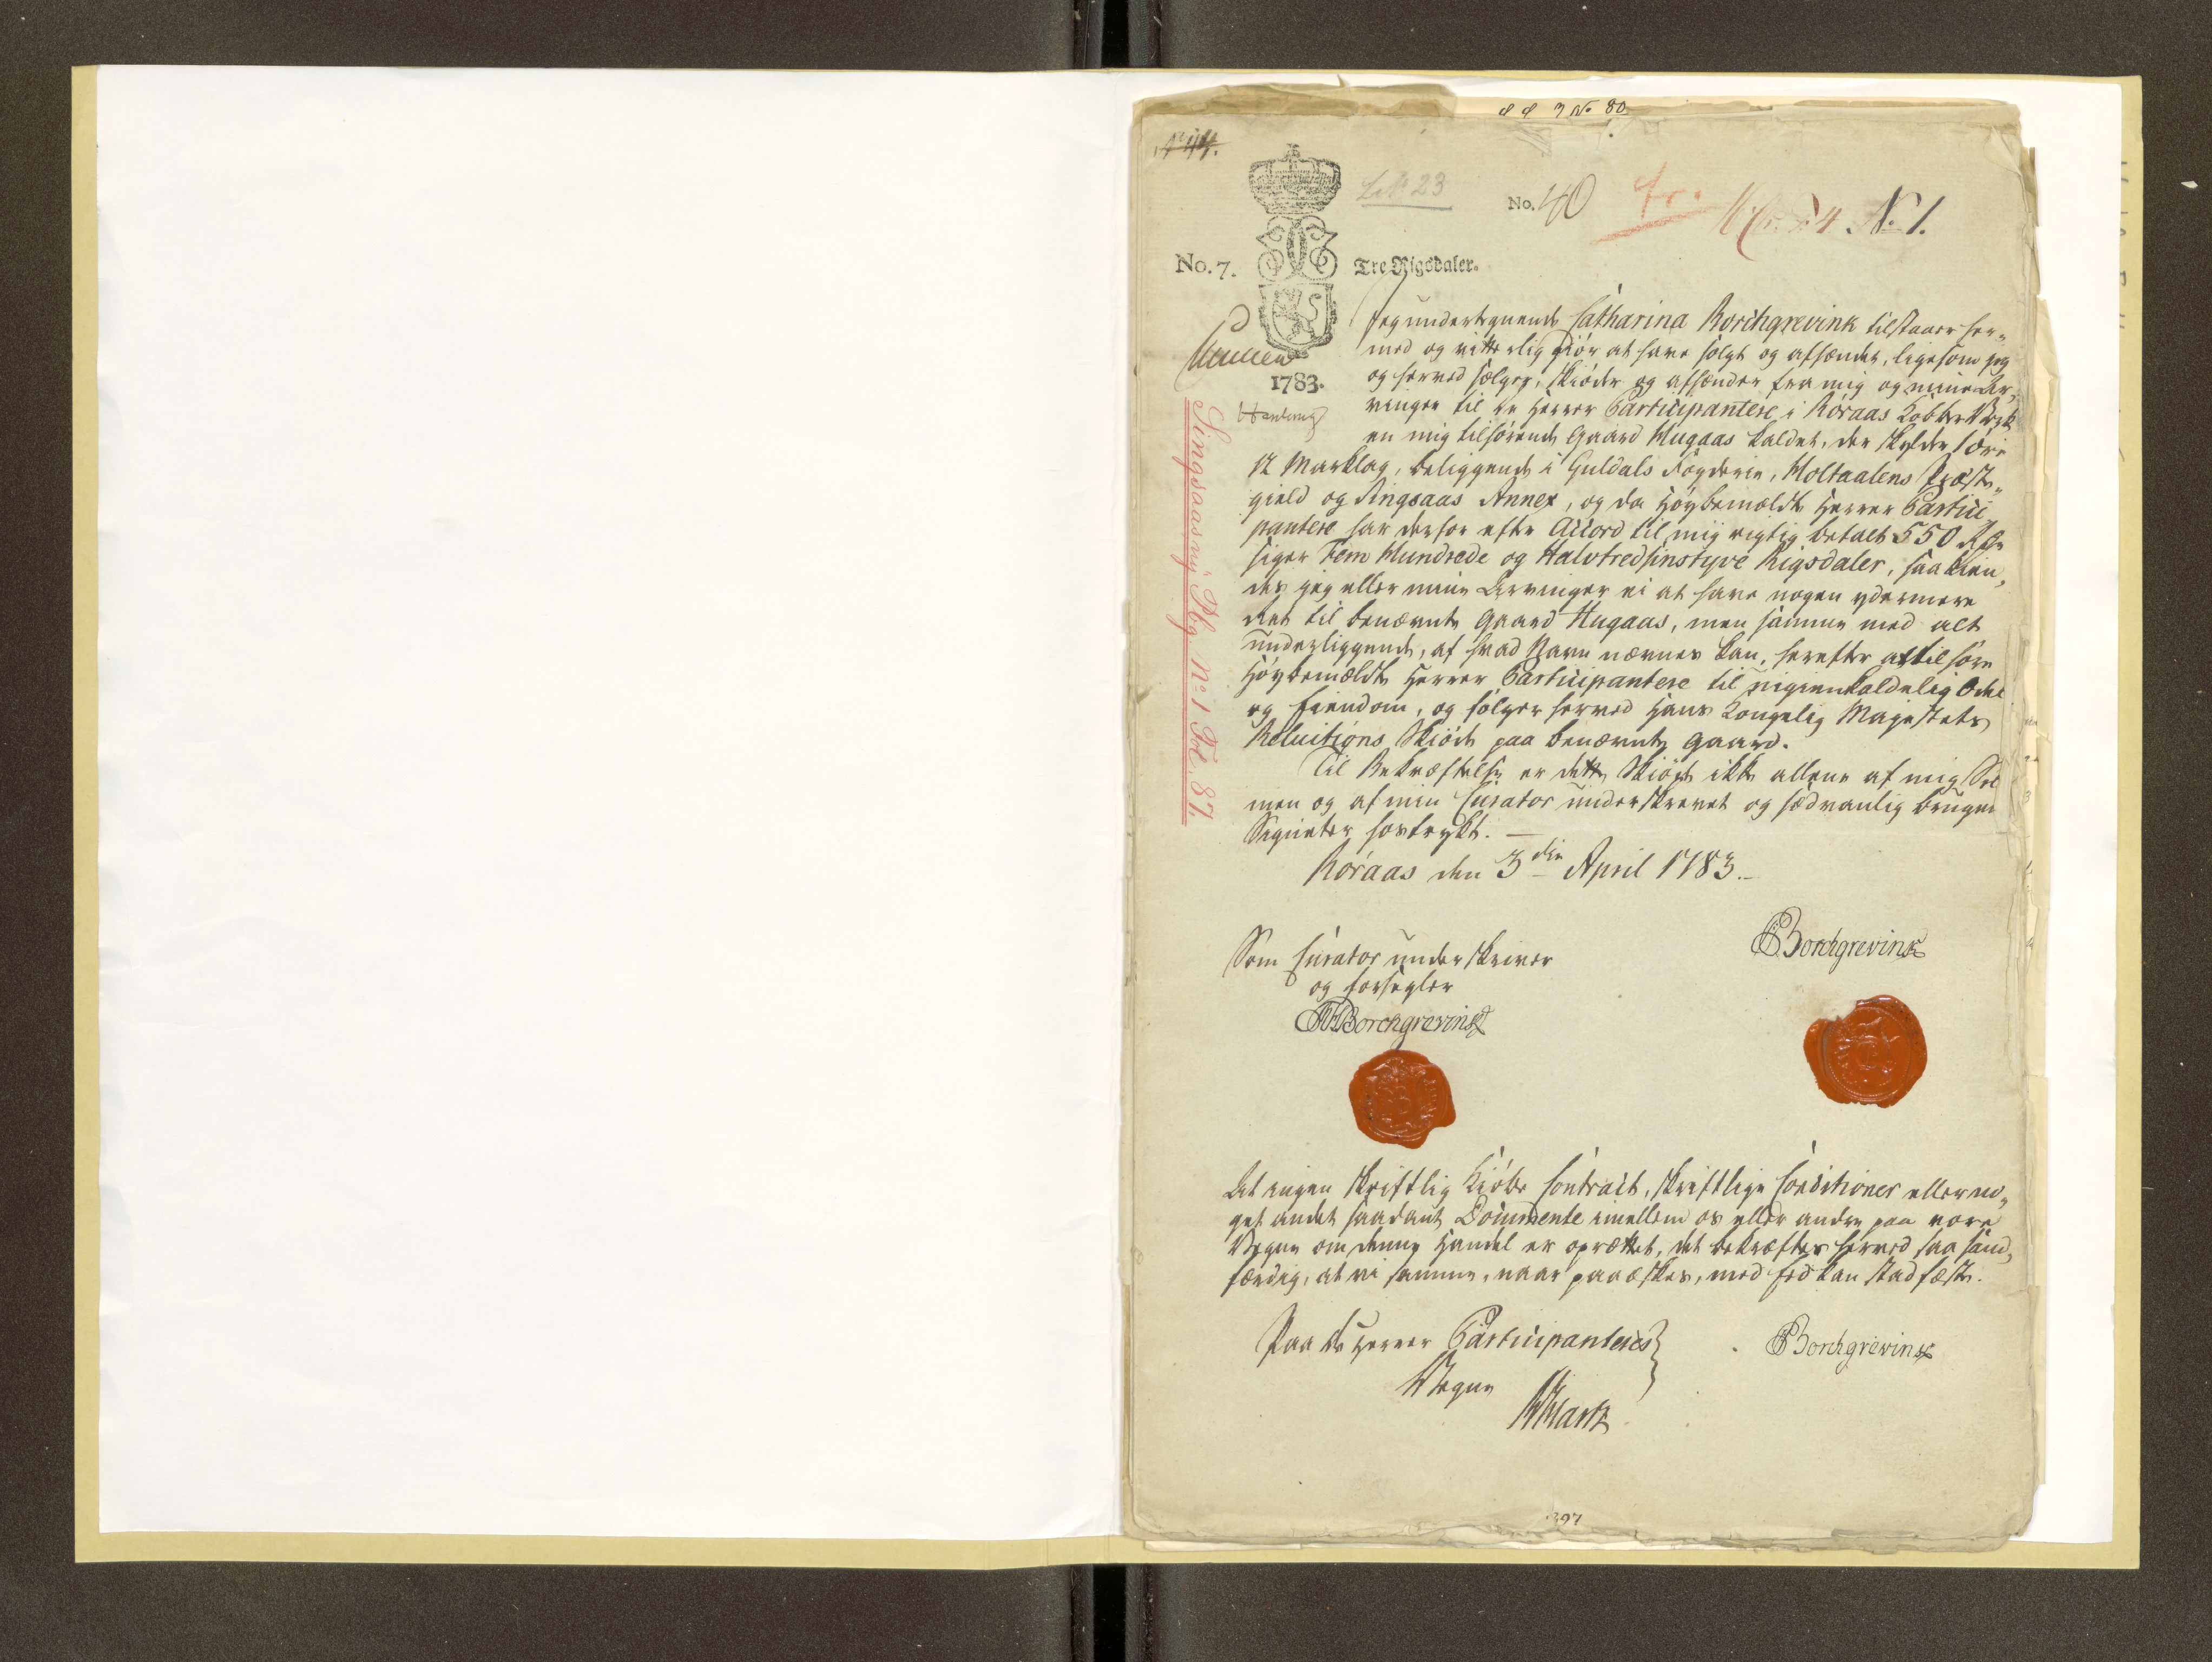 No 44.
Lit. 23
No. 40
No 1.
No. 7.
Tre Rigsdaler.
1783.
Singsaasny Pbg No 1 Fol. 87
Jeg undertegnende Catharina Borchgrevink tilstaaer her„
med og vitterlig giør at have solgt og afhændet, ligesom jeg
og herved sælger, skiøder og afhænder fra mig og mine Ar„
vinger til de Herrer Participantere i Røraas Kobber Værk
en mig tilhørende Gaard Hugaas kaldet, der skylder 1 Øre
12 Marklag, beliggende i Guldals Fogderie, Holtaalens Præste„
gield og Singsaas Annex, og da Høybemældte Herrer Partici
pantere har derfor efter Accord til mig rigtig betalt 550 Rdr
siger Fem Hundrede og Halvtredsinstyve Rigsdaler, saa kien„
des jeg eller mine Arvinger ei at have nogen ydermere
Ret til benævnte Gaard Hugaas, men samme med alt
underliggende, af hvad Navn nævnes kan, herefter at tilhøre
Høybemældte Herrer Participantere til uigienkaldelig Odel
og Eiendom, og følger herved Hans Kongelig Majestets
Reluitions Skiøde paa benævnte Gaard.
Til Bekræftelse er dette Skiøde ikke allene af mig Selv
men og af min Curator underskrevet og sædvanlig brugen
Signeter hostrykt. —
Røraas den 3die April 1783.
CBorchgrevink
Som Curator underskriver
og forsegler
Borchgrevink
At ingen skriftlig Kiøbe Contract, skriftlige Conditioner eller no„
get andet saadant Documente imellem os eller andre paa vore
Vegne om denne Handel er oprættet, det bekræftes herved saa sand„
færdig, at vi samme, naar paaæskes, med Eed kan stadfæste.
Paa de Herrer Participanteres
Vegne
CBorchgrevink
397